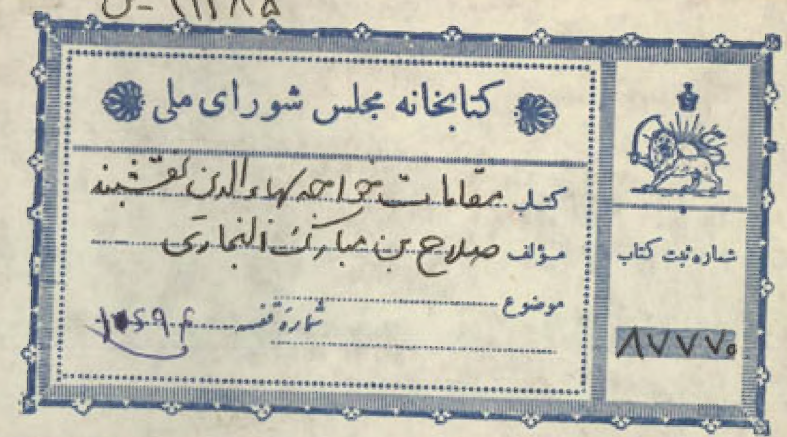 ۱۱۳۸۵ -
کتابخانه مجلس شورای ملی
کتاب مقامات خواجه بهاءالدین نقشبند
مؤلف صلاح بن مبارک البخاری
موضوع
شمارهٔ قفسه
شماره ثبت کتاب
۸۷۷۷۰